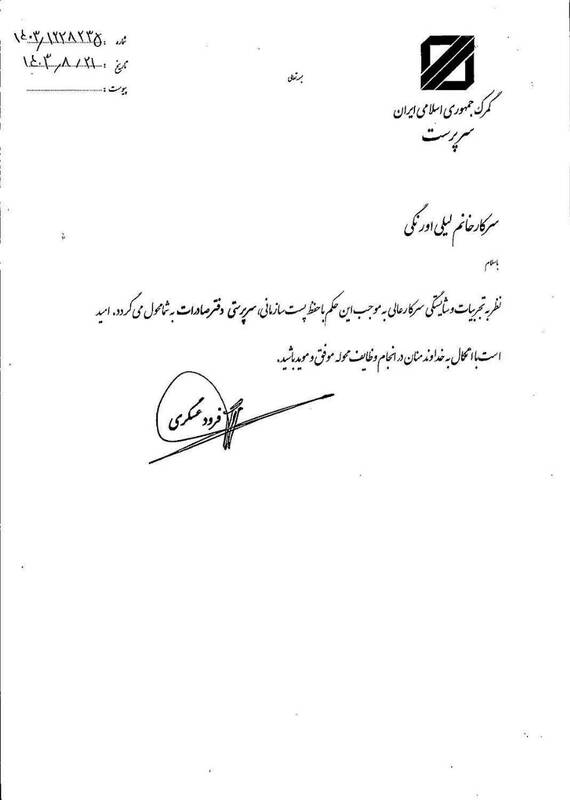 شماره : ۱٤۰۳/۱۲۲۸۲۳۵
تاریخ : ۱٤۰۳/۸/۲۱
پیوست :
بسمه تعالی
گمرک جمهوری اسلامی ایران
سرپرست
سرکار خانم لیلی اورنگی
باسلام
نظر به تجربیات و شایستگی سرکارعالی به موجب این حکم با حفظ پست سازمانی، سرپرستی دفتر صادرات به شما محول می گردد. امید
است با اتکال به خداوند منان در انجام وظایف محوله موفق و موید باشید.
فرود عسگری